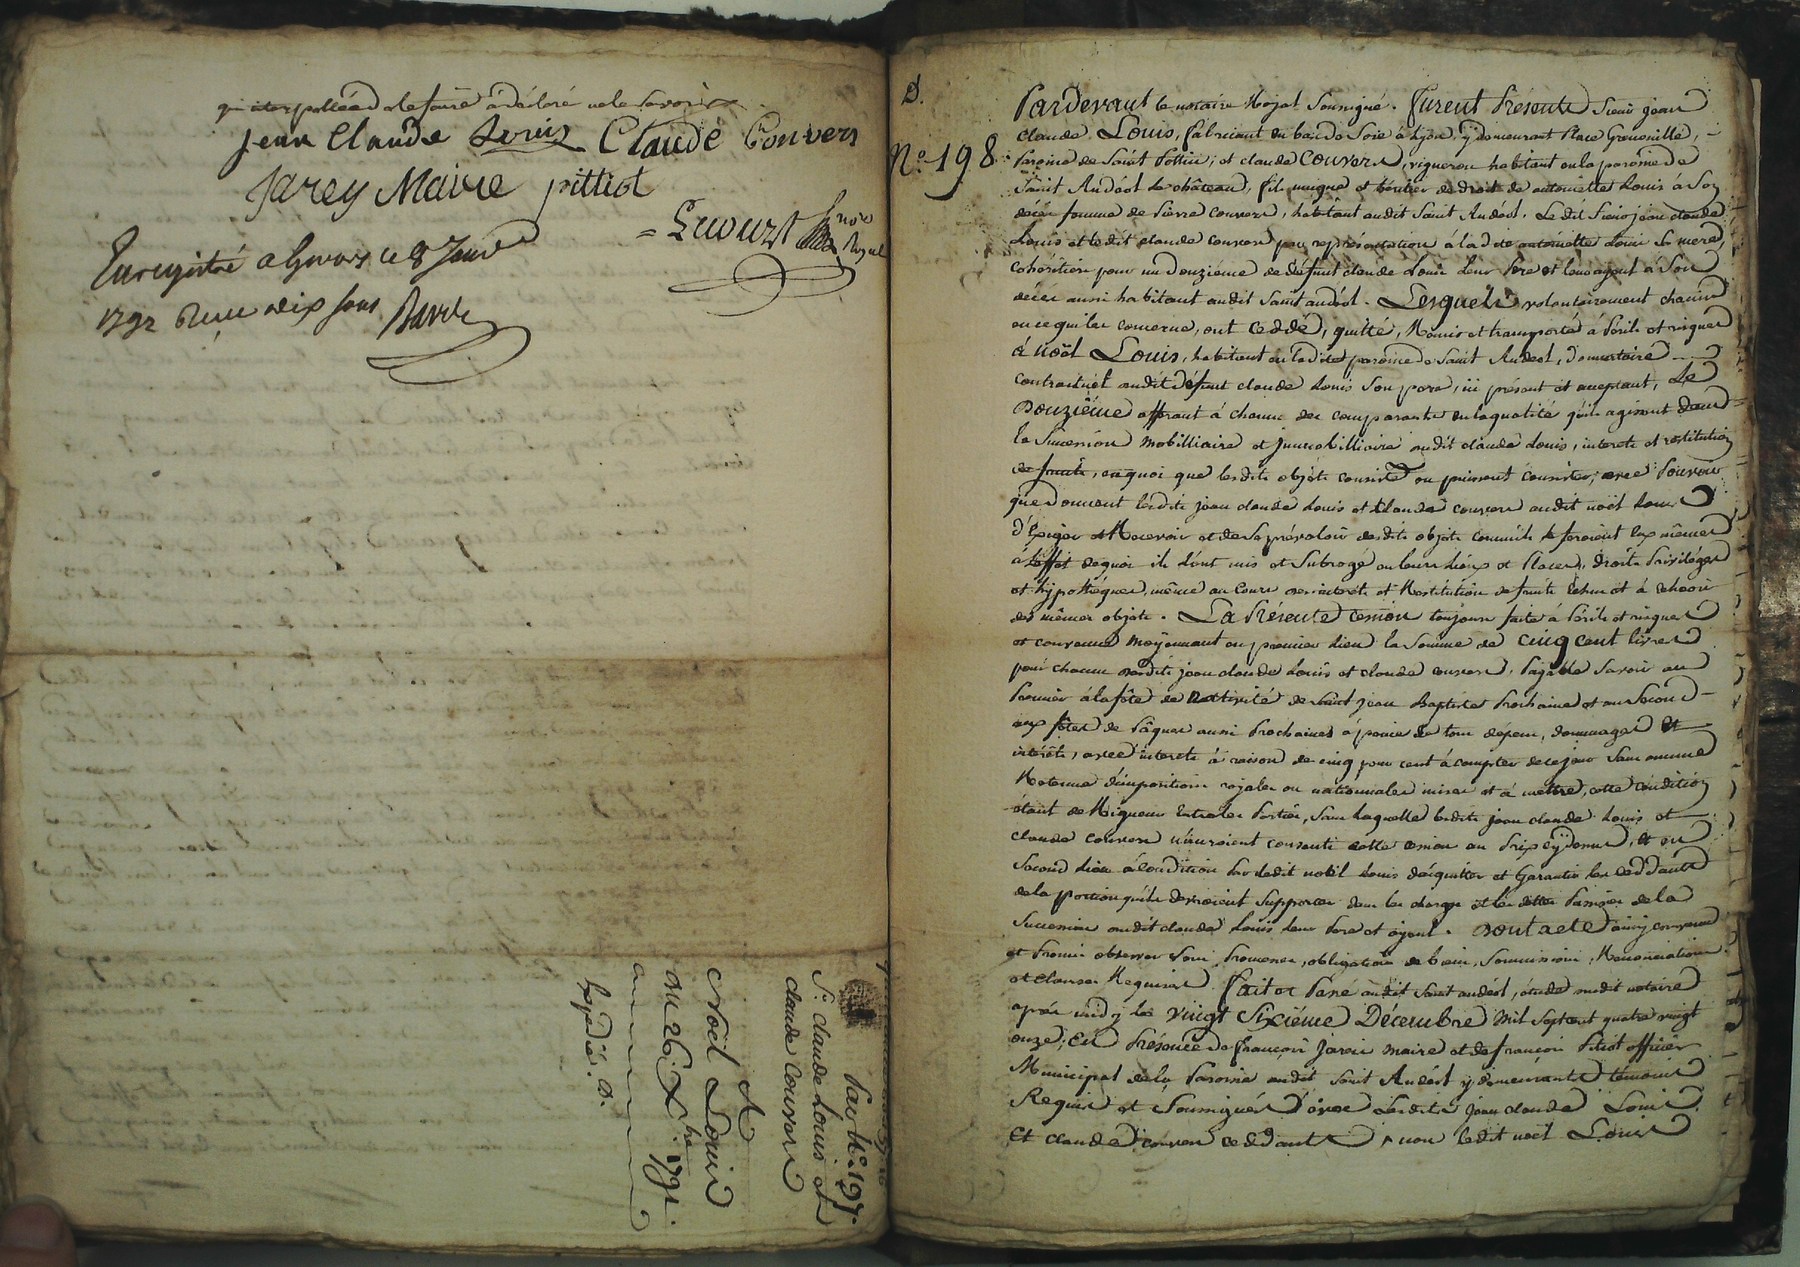 qui interpellé de faire a déclaré ne le savoir
Jean Claude Louis Claude Convers
Jarey Maire pittiot
Enregistré a Givors le 8 Janv
1792 Reçu dix sous
Royal
Par N° 197.
Sr. claude Louis et
claude Convers
A
Noel Louis
du 26 Xbre 1791.
Expédié. D.
D.
N°. 198
Pardevant le notaire Royal Soussigné. furent Présents Sieur jean
claude Louis, fabriquant en bas de Soie à Lyon y demeurant Place Grenouille,
Paroisse de Saint Pottin; et claude Convers, vigneron habitant en la paroisse de
Saint Andéol le château, fils unique et héritier de droit de antoinette Louis à Son
décès femme de Pierre Convers, habitant audit Saint Andéol. Le dit Sieur jean claude
Louis et le dit claude convers par représentation à la dite antoinette Louis Sa mere,
cohéritiers pour un Douzième de défunt claude Louis leur Pere et leur ayeul à Son
décès aussi habitant audit Saint andéol. Lesquels volontairement chacun
en ce qui les concerne, ont Ceddé, quitté, Remis et transporté à Périls et risques
à noël Louis, habitant en la dite paroisse de Saint Andeol, donnataire
contractuel audit défunt claude Louis Son pere, ici présent et acceptant, Le
Douzième afferant à chacun des comparants en la qualité qu'ils agissent dans
la Succession Mobilliaire et Immobilliaire audit claude Louis, interets et restitution
de fruits, en quoi que lesdits objets consiste ou puissent consister, avec Pouvoir
que donnent lesdits jean claude Louis et Claude convers audit noël Louis
d'Exiger et Recevoir et de Se prévaloir desdits objets comme ils le feroient Eux mêmes
à L'effet de quoi ils l'ont mis et Subrogé en leurs Lieux et Places, droits Privilèges
et hypothèques, même au Cours des interets et Restitution de fruits Echus et à echeoir
des mêmes objets. La Présente cession toujours faite à Périls et risques
et convenue Moyennant en premier lieu la Somme de Cinq cent livres
pour chacun desdits jean claude Louis et claude convers. Payable Savoir au
Premier à la fête de Nativité de Saint jean Baptiste Prochaine et au Second
aux fêtes de Pâques aussi Prochaines à peine de tous dépens, dommages Et
intérêts, avec interets à raison de cinq pour cent à compter de ce jour Sans aucune
Retenue d'imposition royales ou nationnales mises et à mettre, cette condition
étant de Rigueur Entre les Parties, Sans Laquelle lesdits jean claude Louis et
claude convers n'auroient consenti cette cession au Prix cy donné, Et en
Second Lieu à Condition Par ledit noël Louis d'acquitter et Garantir les Ceddants
de la Portion qu'ils devroient Supporter dans les charges et les dettes Passives de la
Succession audit claude Louis leur Pere et ayeul. Dont acte ainsi convenu
et Promis observer Sous Promesses, obligations de biens, Soumissions, Renonciations
et clauses Requises. Fait et Passé audit Saint andeol, étude audit notaire
après midy le vingt Sixième Décembre Mil Sept cent quatre vingt
onze, En Présence de françois Jarei maire et de françois Pitiot officier
Municipal de la Paroisse audit Saint Andéol y demeurants témoins
Requis et Soussignés avec Lesdits jean claude Louis
Et claude convers ceddants, non ledit noël Louis